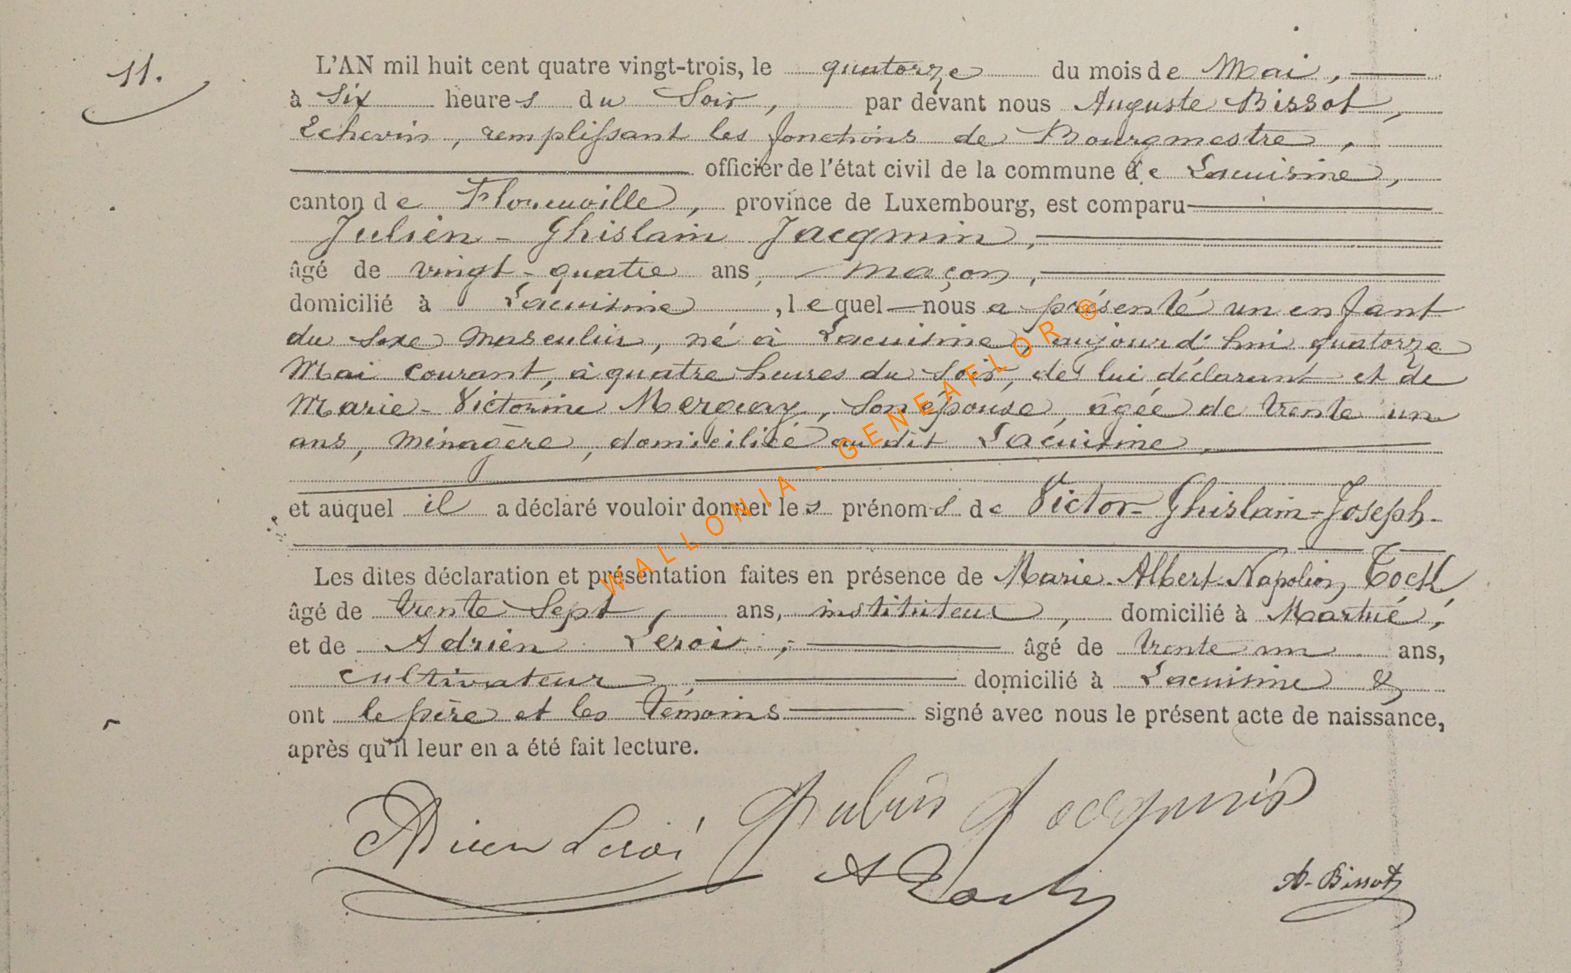 11.
L'AN mil huit cent quatre vingt-trois, le quatorze du mois de Mai,
à Six heures du Soir, par devant nous Auguste Bissot,
Echevin, remplissant les fonctions de Bourgmestre,
officier de l'état civil de la commune de Lacuisine,
canton de Florenville, province de Luxembourg, est comparu
Julien - Ghislain Jacqmin,
âgé de vingt-quatre ans, maçon,
domicilié à Lacuisine, lequel nous a présenté un enfant
du sexe masculin, né à Lacuisine, aujourd'hui quatorze
Mai courant, à quatre heures du soir, de lui déclarant et de
Marie-Victorine, son épouse, âgée de trente un
ans, ménagère, domiciliée au dit Lacuisine,
et auquel il a déclaré vouloir donner les prénoms de Victor-Ghislain-Joseph.
Les dites déclaration et présentation faites en présence de Marie-Albert-Napoléon,
âgé de trente Sept, ans, instituteur, domicilié à Martué,
et de Adrien Leroi, âgé de trente un ans,
cultivateur, domicilié à Lacuisine &
ont le père et les témoins signé avec nous le présent acte de naissance,
après qu'il leur en a été fait lecture.
Adrien Leroi Julien Jacqmin
A. Bissot
WALLONIA - GENEAFLOR ®